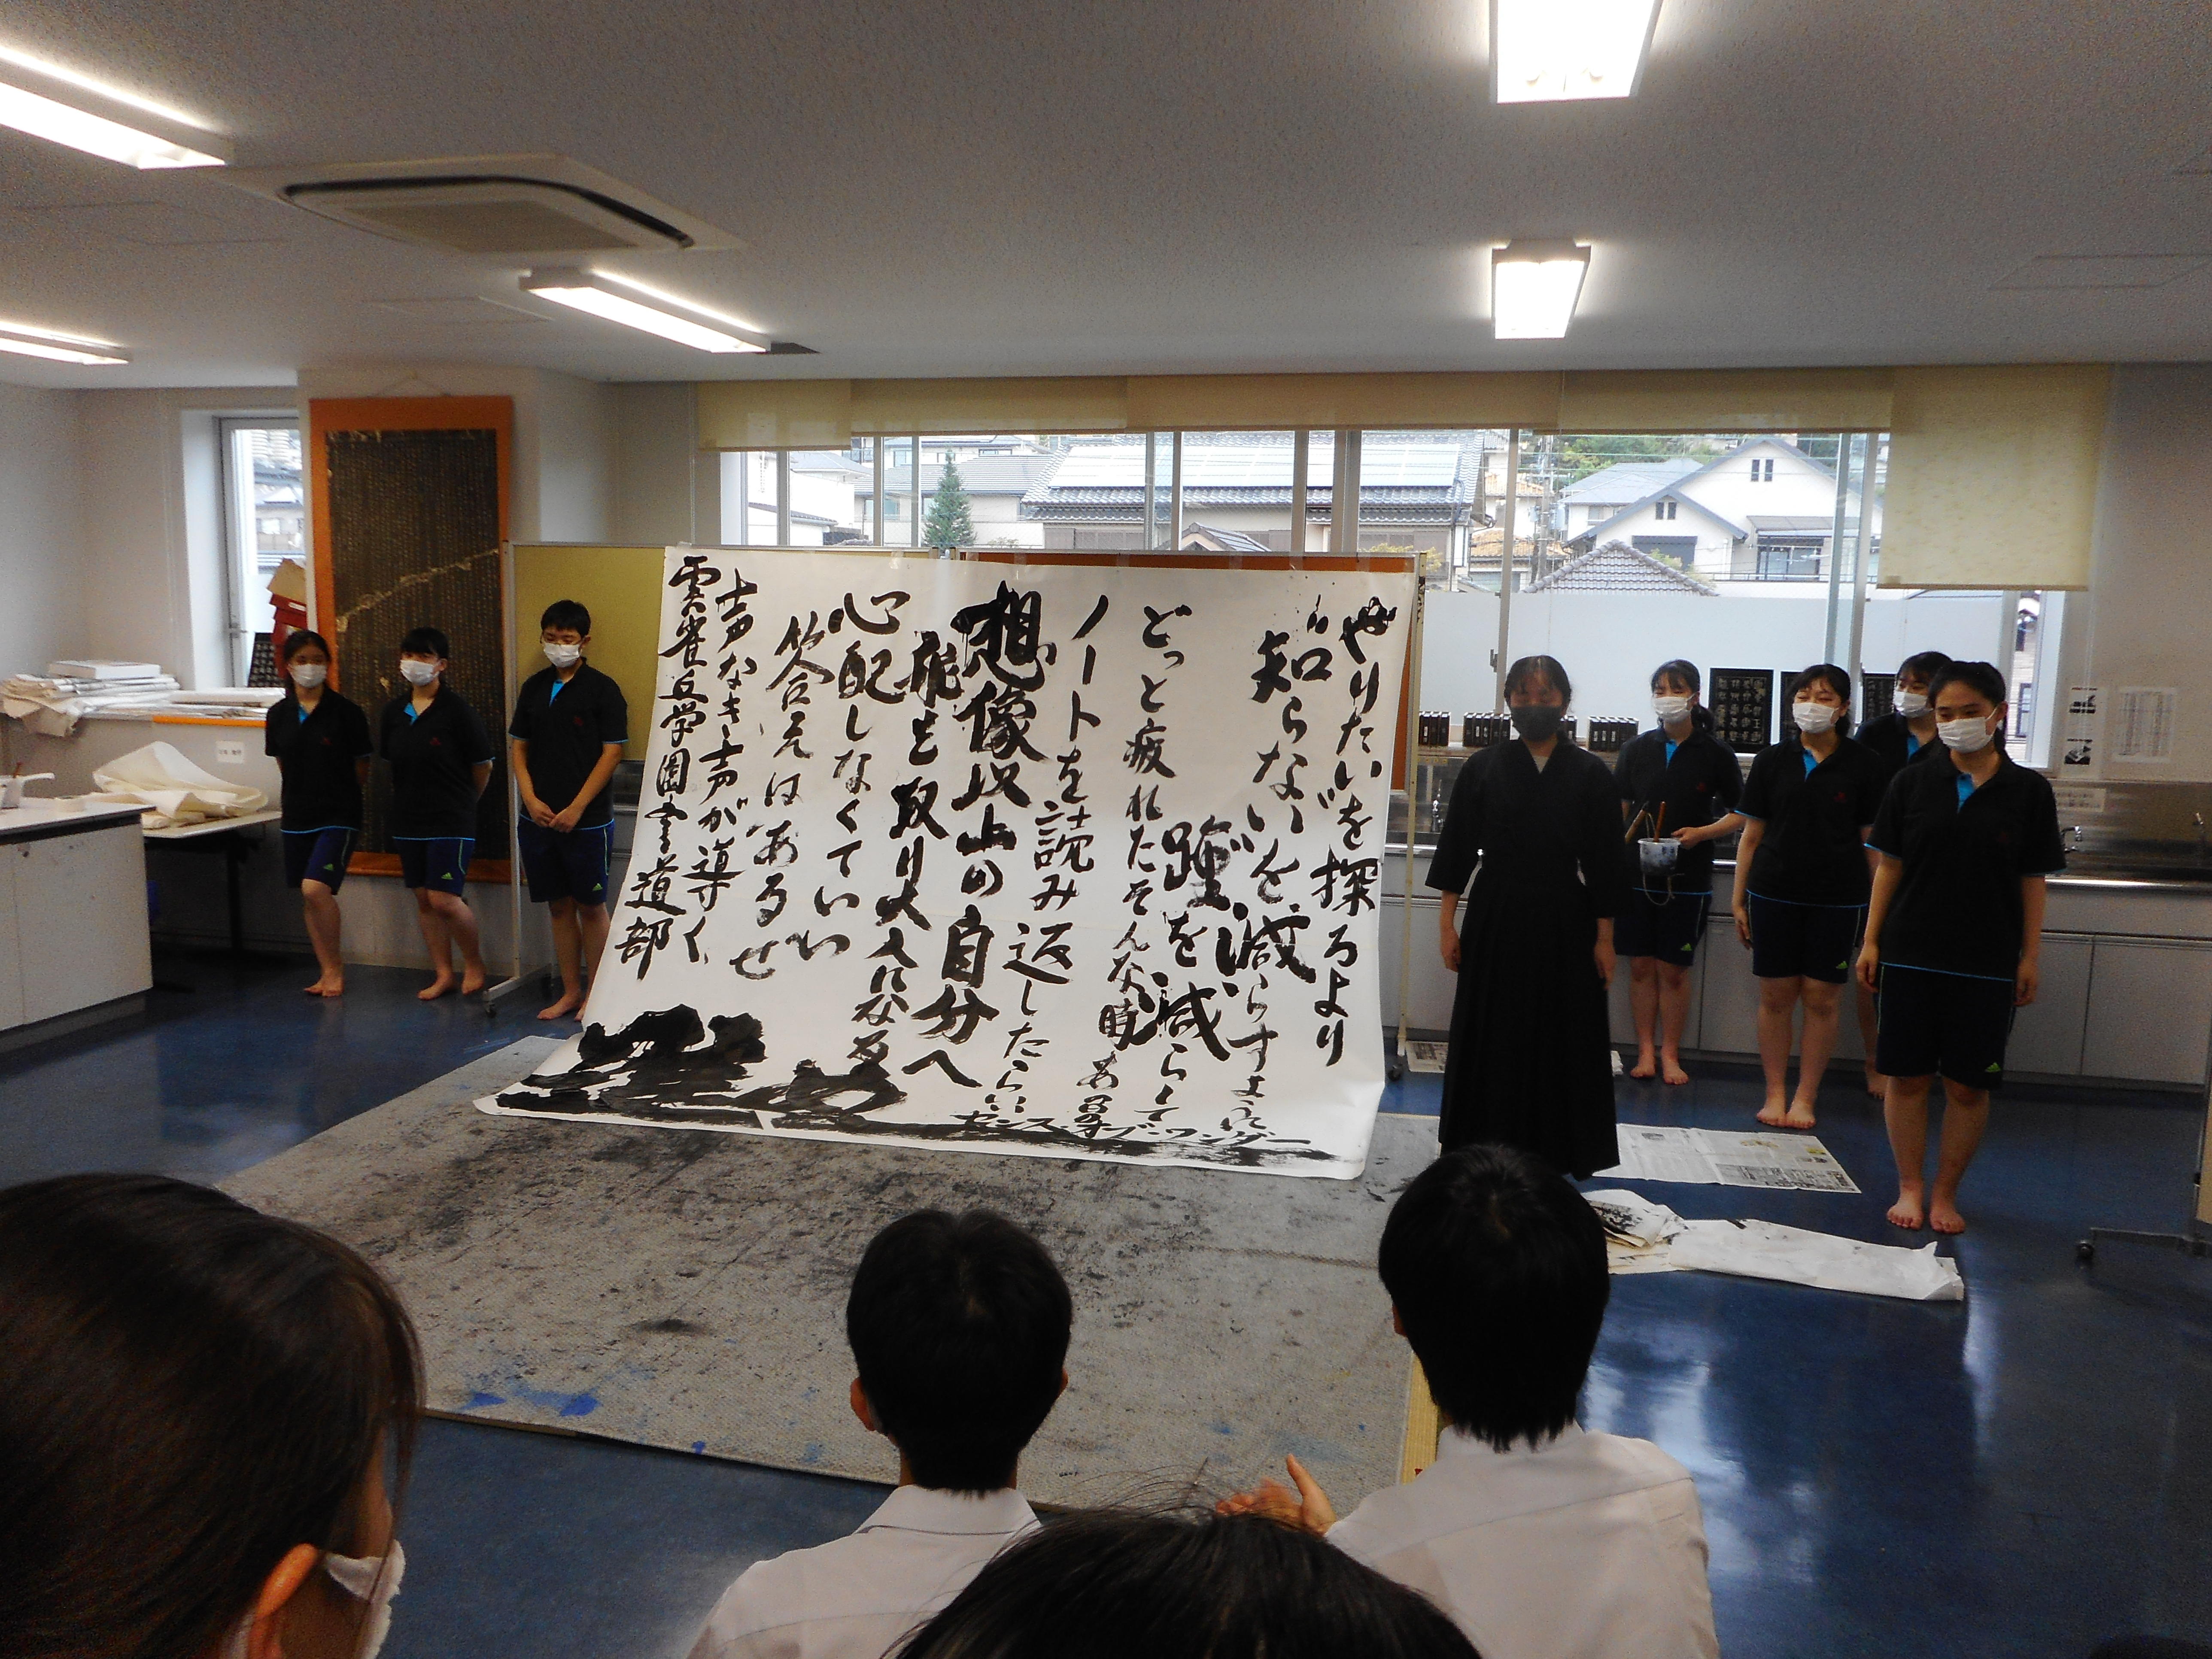 やりたいを探るより
"知らない"を減らすように
を減らして
どっと疲れたそんな時 あの日の
ノートを読み返したらいい
想像以上の自分へ
を取り大人になる
心配しなくていい
答えはあるぜ
声なき声が導く
センス・オブ・ワンダー
雲雀丘学園書道部